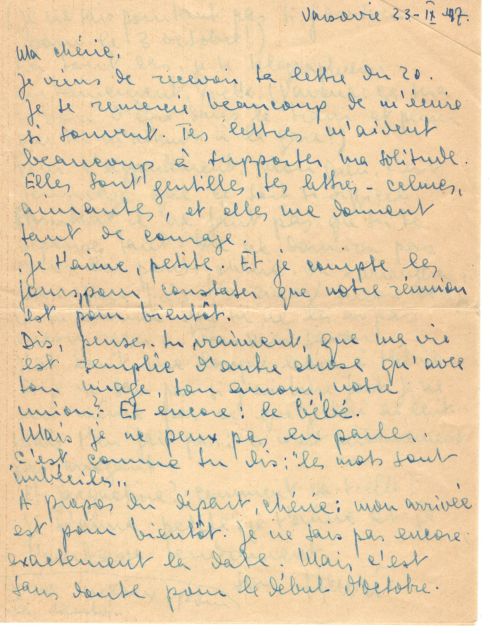 Varsovie 23-IX-47.
Ma chérie.
Je viens de recevoir ta lettre du 20.
Je te remercie beaucoup de m'écrire
si souvent. Tes lettres m'aident
beaucoup à supporter ma solitude.
Elles sont gentilles, tes lettres - calmes,
aimantes, et elles me donnent
tant de courage.
Je t'aime, petite. Et je compte les
jours, pour constater que notre réunion
est pour bientôt.
Dis, penses-tu vraiment, que ma vie
est remplie d'autre chose qu'avec
ton image, ton amour, notre
union? Et encore: le bébé.
Mais je ne peux pas en parler.
C'est comme tu dis: "les mots sont
imbéciles".
A propos du départ, chérie: mon arrivée
est pour bientôt. Je ne sais pas encore
exactement la date. Mais c'est
sans doute pour le début d'octobre.